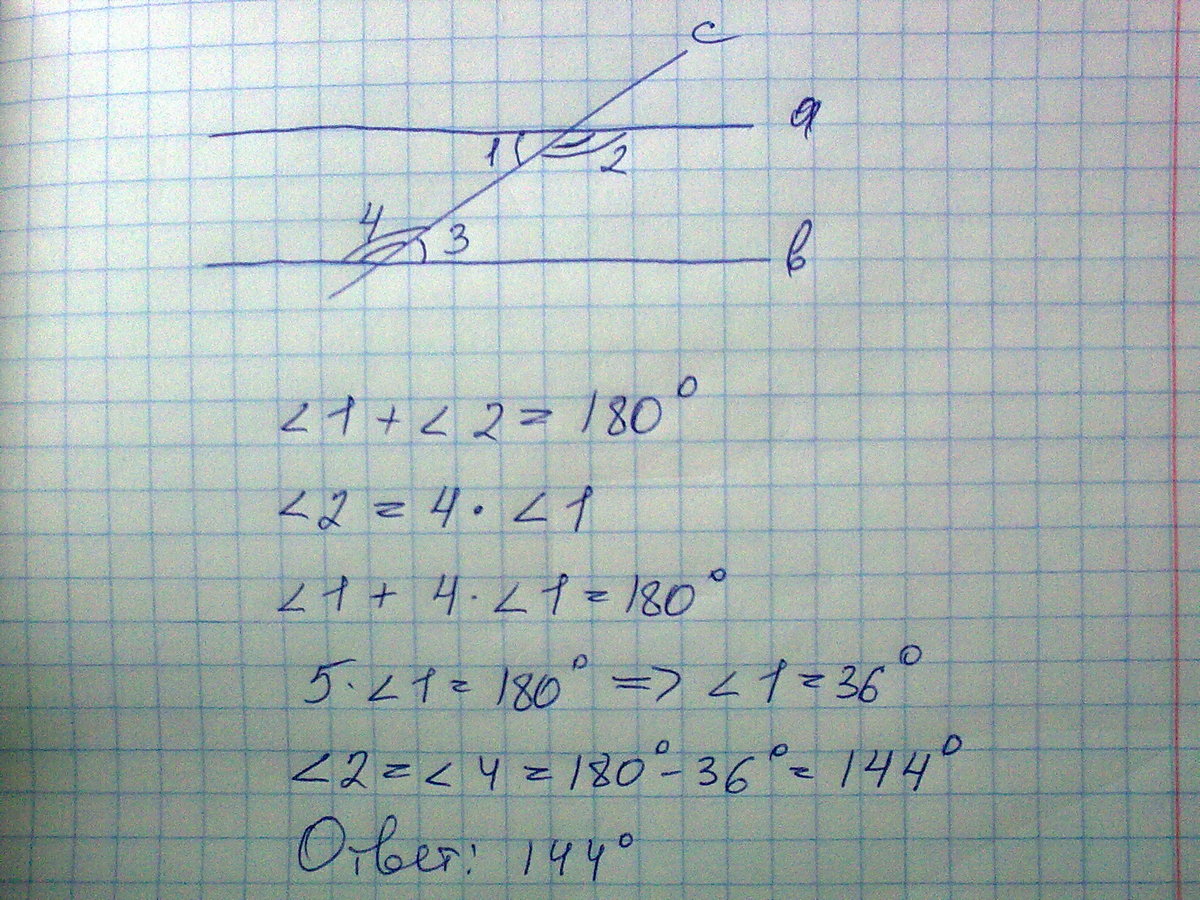 c
a
1
2
4
3
в
∠1 + ∠2 = 180°
∠2 = 4 · ∠1
∠1 + 4 · ∠1 = 180°
5 · ∠1 = 180° => ∠1 = 36°
∠2 = ∠4 = 180° - 36° = 144°
Ответ: 144°